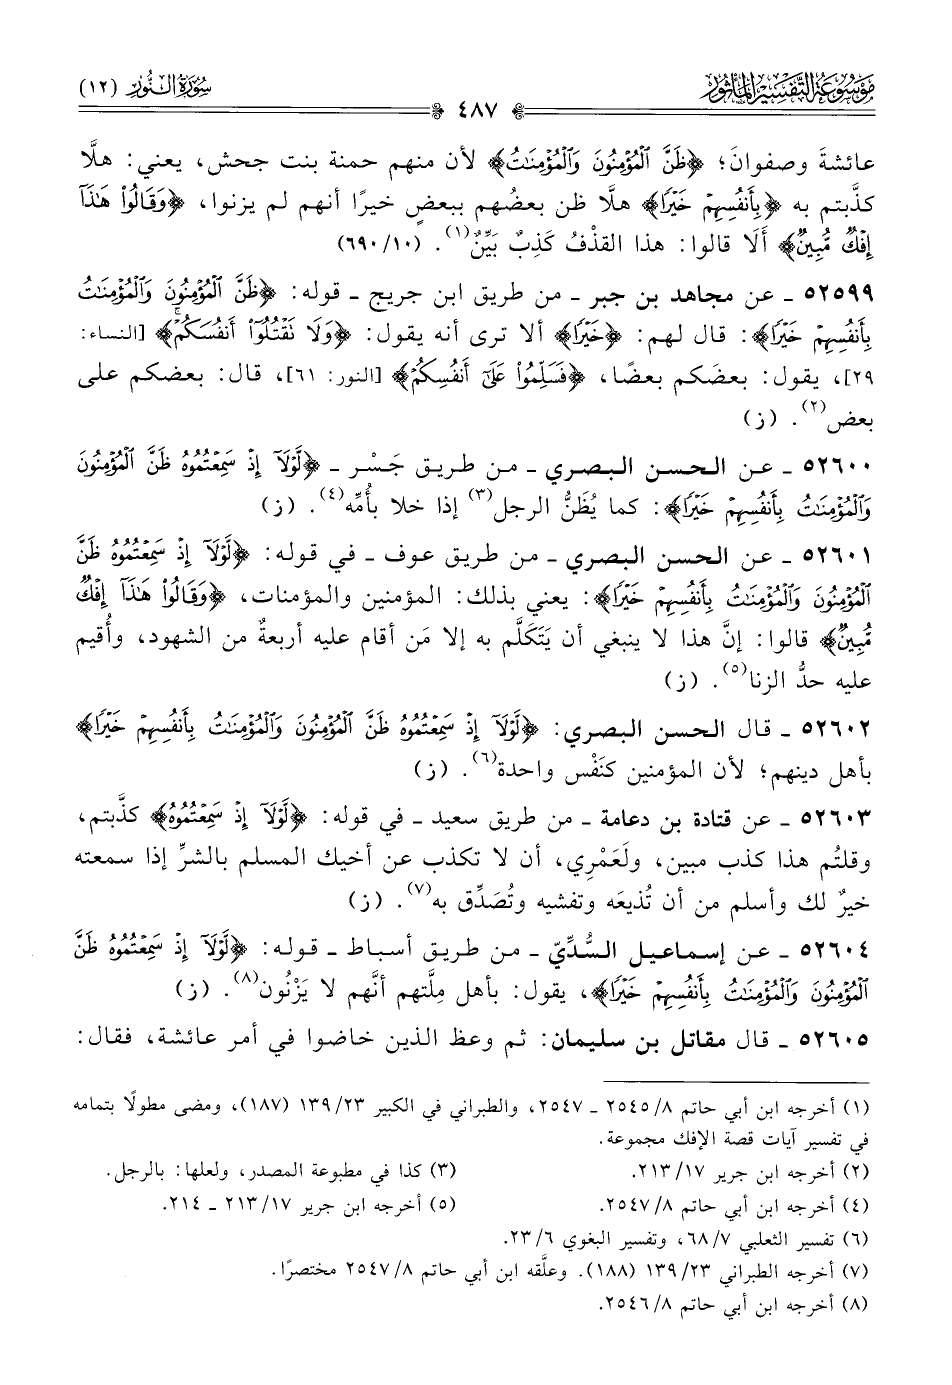 موسوعة التفسير المأثور
سورة النور (١٢)
٤٨٧
عائشةَ وصفوانَ؛ ﴿ظَنَّ الْمُؤْمِنُونَ وَالْمُؤْمِنَاتُ﴾ لأن منهم حمنة بنت جحش، يعني: هلَّا
كذَّبتم به ﴿بِأَنفُسِهِمْ خَيْرًا﴾ هلَّا ظن بعضُهم ببعضٍ خيرًا أنهم لم يزنوا، ﴿وَقَالُوا هَٰذَآ
إِفْكٌ مُّبِينٌ﴾ ألَا قالوا: هذا القذْفُ كَذِبٌ بَيِّنٌ(١). (٦٩٠/١٠)
٥٢٥٩٩ ـ عن مجاهد بن جبر ـ من طريق ابن جريج ـ قوله: ﴿ظَنَّ الْمُؤْمِنُونَ وَالْمُؤْمِنَاتُ
بِأَنفُسِهِمْ خَيْرًا﴾: قال لهم: ﴿خَيْرًا﴾ ألا ترى أنه يقول: ﴿وَلَا تَقْتُلُوٓا أَنفُسَكُمْ﴾ [النساء:
٢٩]، يقول: بعضَكم بعضًا، ﴿فَسَلِّمُوا عَلَىٰٓ أَنفُسِكُمْ﴾ [النور: ٦١]، قال: بعضكم على
بعض(٢). (ز)
٥٢٦٠٠ ـ عن الحسن البصري ـ من طريق جَسْر ـ ﴿لَّوْلَآ إِذْ سَمِعْتُمُوهُ ظَنَّ الْمُؤْمِنُونَ
وَالْمُؤْمِنَاتُ بِأَنفُسِهِمْ خَيْرًا﴾: كما يُظَنُّ الرجل(٣) إذا خلا بأُمِّه(٤). (ز)
٥٢٦٠١ ـ عن الحسن البصري ـ من طريق عوف ـ في قوله: ﴿لَّوْلَآ إِذْ سَمِعْتُمُوهُ ظَنَّ
الْمُؤْمِنُونَ وَالْمُؤْمِنَاتُ بِأَنفُسِهِمْ خَيْرًا﴾: يعني بذلك: المؤمنين والمؤمنات، ﴿وَقَالُوا هَٰذَآ إِفْكٌ
مُّبِينٌ﴾ قالوا: إنَّ هذا لا ينبغي أن يَتَكَلَّم به إلا مَن أقام عليه أربعةٌ من الشهود، وأُقيم
عليه حدُّ الزنا(٥). (ز)
٥٢٦٠٢ ـ قال الحسن البصري: ﴿لَّوْلَآ إِذْ سَمِعْتُمُوهُ ظَنَّ الْمُؤْمِنُونَ وَالْمُؤْمِنَاتُ بِأَنفُسِهِمْ خَيْرًا﴾
بأهل دينهم؛ لأن المؤمنين كنَفْس واحدة(٦). (ز)
٥٢٦٠٣ ـ عن قتادة بن دعامة ـ من طريق سعيد ـ في قوله: ﴿لَّوْلَآ إِذْ سَمِعْتُمُوهُ﴾ كذَّبتم،
وقلتُم هذا كذب مبين، ولَعَمْرِي، أن لا تكذب عن أخيك المسلم بالشرِّ إذا سمعته
خيرٌ لك وأسلم من أن تُذيعَه وتفشيه وتُصَدِّق به(٧). (ز)
٥٢٦٠٤ ـ عن إسماعيل السُّدِّيّ ـ من طريق أسباط ـ قوله: ﴿لَّوْلَآ إِذْ سَمِعْتُمُوهُ ظَنَّ
الْمُؤْمِنُونَ وَالْمُؤْمِنَاتُ بِأَنفُسِهِمْ خَيْرًا﴾، يقول: بأهل مِلَّتهم أنَّهم لا يَزْنُون(٨). (ز)
٥٢٦٠٥ ـ قال مقاتل بن سليمان: ثم وعظ الذين خاضوا في أمر عائشة، فقال:
(١) أخرجه ابن أبي حاتم ٨/ ٢٥٤٥ ـ ٢٥٤٧، والطبراني في الكبير ٢٣/ ١٣٩ (١٨٧)، ومضى مطولًا بتمامه
في تفسير آيات قصة الإفك مجموعة.
(٢) أخرجه ابن جرير ١٧/ ٢١٣. (٣) كذا في مطبوعة المصدر، ولعلها: بالرجل.
(٤) أخرجه ابن أبي حاتم ٨/ ٢٥٤٧. (٥) أخرجه ابن جرير ١٧/ ٢١٣ ـ ٢١٤.
(٦) تفسير الثعلبي ٧/ ٦٨، وتفسير البغوي ٦/ ٢٣.
(٧) أخرجه الطبراني ٢٣/ ١٣٩ (١٨٨). وعلَّقه ابن أبي حاتم ٨/ ٢٥٤٧ مختصرًا.
(٨) أخرجه ابن أبي حاتم ٨/ ٢٥٤٦.